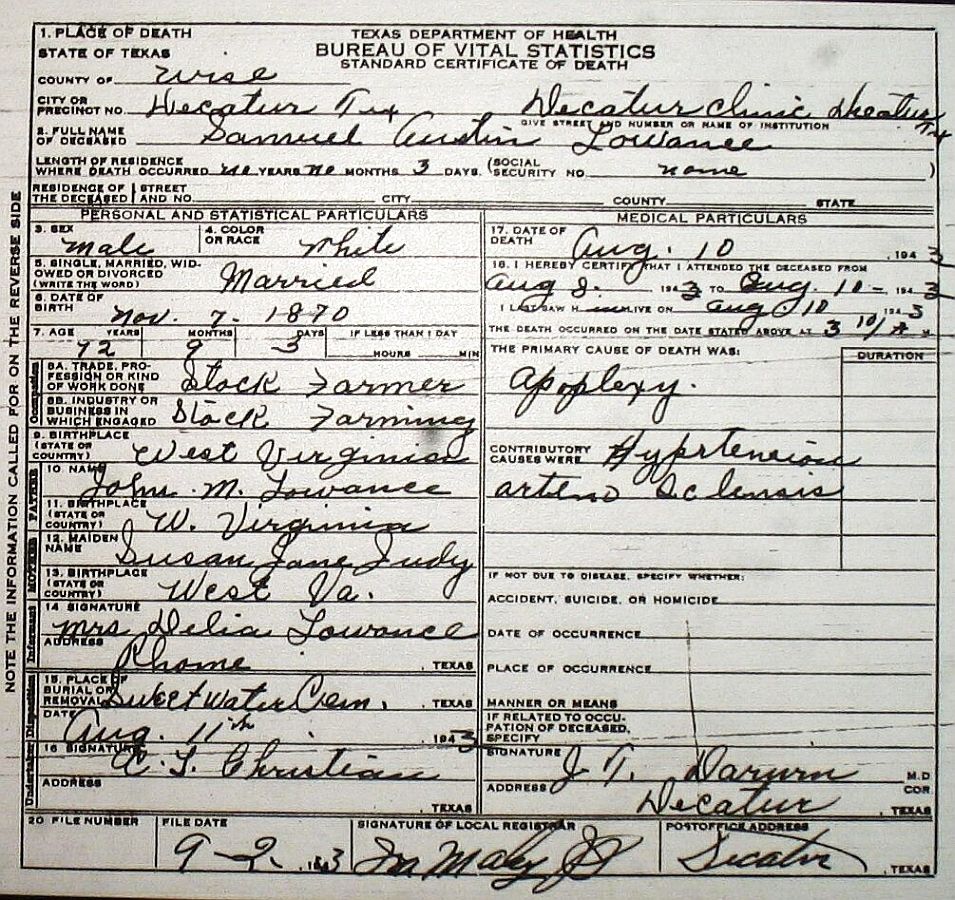 1. PLACE OF DEATH
STATE OF TEXAS
TEXAS DEPARTMENT OF HEALTH
BUREAU OF VITAL STATISTICS
STANDARD CERTIFICATE OF DEATH
COUNTY OF Wise
CITY OR PRECINCT NO. Decatur Tex Decatur Clinic Decatur Tex
GIVE STREET AND NUMBER OR NAME OF INSTITUTION
2. FULL NAME OF DECEASED Samuel Austin Lowance
LENGTH OF RESIDENCE WHERE DEATH OCCURRED no YEARS no MONTHS 3 DAYS. (SOCIAL SECURITY NO. none )
RESIDENCE OF THE DECEASED STREET AND NO. CITY COUNTY STATE
PERSONAL AND STATISTICAL PARTICULARS
3. SEX male 4. COLOR OR RACE White
5. SINGLE, MARRIED, WIDOWED OR DIVORCED (WRITE THE WORD) Married
6. DATE OF BIRTH Nov. 7- 1870
7. AGE YEARS MONTHS DAYS IF LESS THAN 1 DAY
72 9 3 HOURS MIN
Occupation
8A. TRADE, PROFESSION OR KIND OF WORK DONE Stock Farmer
8B. INDUSTRY OR BUSINESS IN WHICH ENGAGED Stock Farming
9. BIRTHPLACE (STATE OR COUNTRY) West Virginia
FATHER
10. NAME John M. Lowance
11. BIRTHPLACE (STATE OR COUNTRY) W. Virginia
MOTHER
12. MAIDEN NAME Susan Jane Judy
13. BIRTHPLACE (STATE OR COUNTRY) West Va.
Informant
14 SIGNATURE Mrs Delia Lowance
ADDRESS Rhome , TEXAS
Disposition
15. PLACE OF BURIAL OR REMOVAL Sweetwater Cem. , TEXAS
DATE Aug. 11th 1943
Undertaker
16 SIGNATURE C. L. Christian
ADDRESS , TEXAS
MEDICAL PARTICULARS
17. DATE OF DEATH Aug. 10 , 1943
18. I HEREBY CERTIFY THAT I ATTENDED THE DECEASED FROM
Aug 8. 1943 TO Aug. 10- , 1943
I LAST SAW H im ALIVE ON Aug 10 1943
THE DEATH OCCURRED ON THE DATE STATED ABOVE AT 3 10/A M
THE PRIMARY CAUSE OF DEATH WAS: DURATION
Apoplexy.
CONTRIBUTORY CAUSES WERE Hyprtension
arterio Sclerosis
IF NOT DUE TO DISEASE, SPECIFY WHETHER:
ACCIDENT, SUICIDE, OR HOMICIDE
DATE OF OCCURRENCE
PLACE OF OCCURRENCE
MANNER OR MEANS
IF RELATED TO OCCUPATION OF DECEASED, SPECIFY
SIGNATURE J. T. Darwin M.D
COR.
ADDRESS Decatur , TEXAS
20 FILE NUMBER FILE DATE SIGNATURE OF LOCAL REGISTRAR POSTOFFICE ADDRESS
9-2. 1943 Decatur , TEXAS
NOTE THE INFORMATION CALLED FOR ON THE REVERSE SIDE